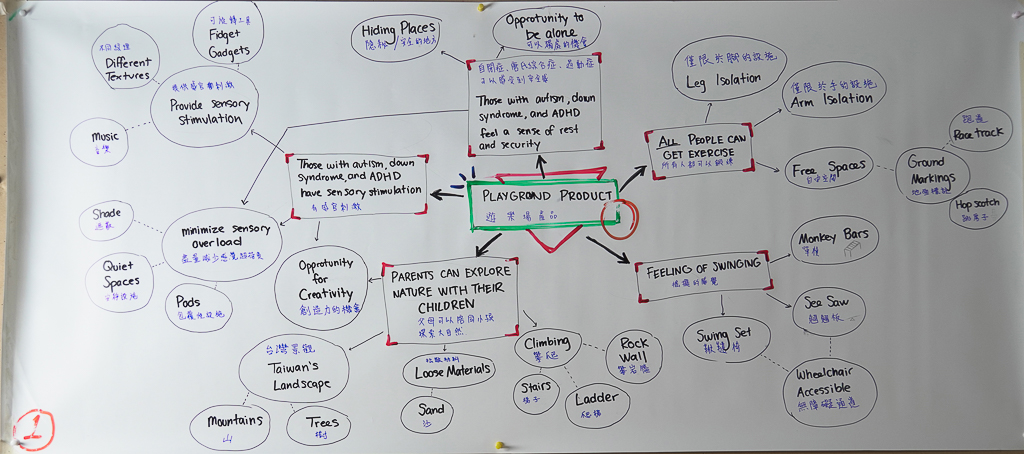 可旋轉工具
Fidget
Gadgets
不同紋理
Different
Textures
提供感官刺激
Provide sensory
Stimulation
Music
音樂
Hiding Places
隱私/安全的地方
Opportunity to
be alone
可以獨處的機會
自閉症、唐氏綜合症、過動症
可以感受到安全感
Those with autism, down
syndrome, and ADHD
feel a sense of rest
and security
僅限於腳的設施
Leg Isolation
僅限於手的設施
Arm Isolation
ALL PEOPLE CAN
GET EXERCISE
所有人都可以鍛鍊
Free Spaces
自由空間
Ground
Markings
地面標記
跑道
Race track
Hopscotch
跳房子
Those with autism, down
syndrome, and ADHD
have sensory stimulation
有感官刺激
PLAYGROUND PRODUCT
遊樂場產品
Shade
遮蔽
minimize sensory
overload
盡量減少感覺超負荷
Quiet
Spaces
安靜設施
Pods
包覆性設施
Opportunity
for
Creativity
創造力的機會
PARENTS CAN EXPLORE
NATURE WITH THEIR
CHILDREN
父母可以陪同小孩
探索大自然
FEELING OF SWINGING
Monkey Bars
單槓
See Saw
翹翹板
Swing Set
鞦韆椅
Whealchair
Accessible
無障礙通道
台灣景觀
Taiwan's
Landscape
Mountains
山
Trees
樹
鬆散材料
Loose Materials
Sand
沙
Climbing
攀爬
Stairs
梯子
Ladder
爬梯
Rock
Wall
攀岩牆
1